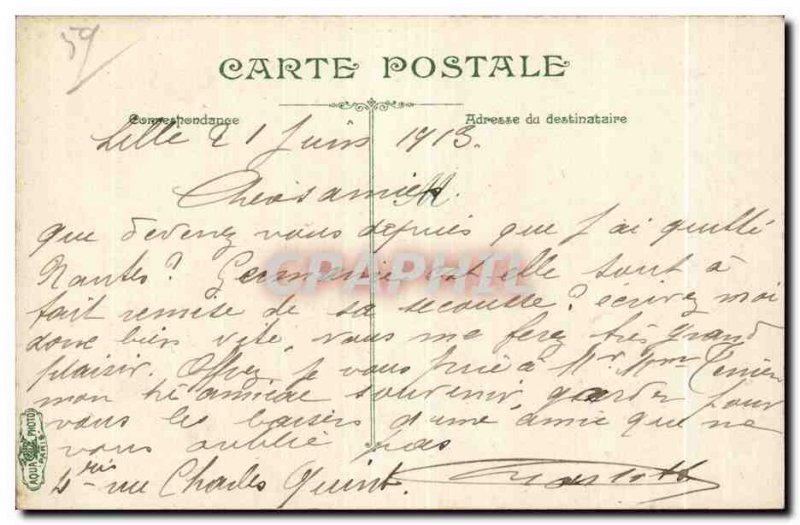 59
CARTE POSTALE
Correspondance
Adresse du destinataire
Lille 21 Juin 1913.
que devenez vous depuis que j'ai quitté
Nantes? Germaine est elle tout à
fait remise de sa secousse? écrivez moi
donc bien vite, vous me ferez très grand
plaisir. Offrez je vous prie à Mr. Mme
mon souvenir, gardez pour
vous les baisers d'une amie qui ne
vous oublie pas
4 bis rue Charles Quint.
CPAPHIL
AQUA PHOTO
PARIS